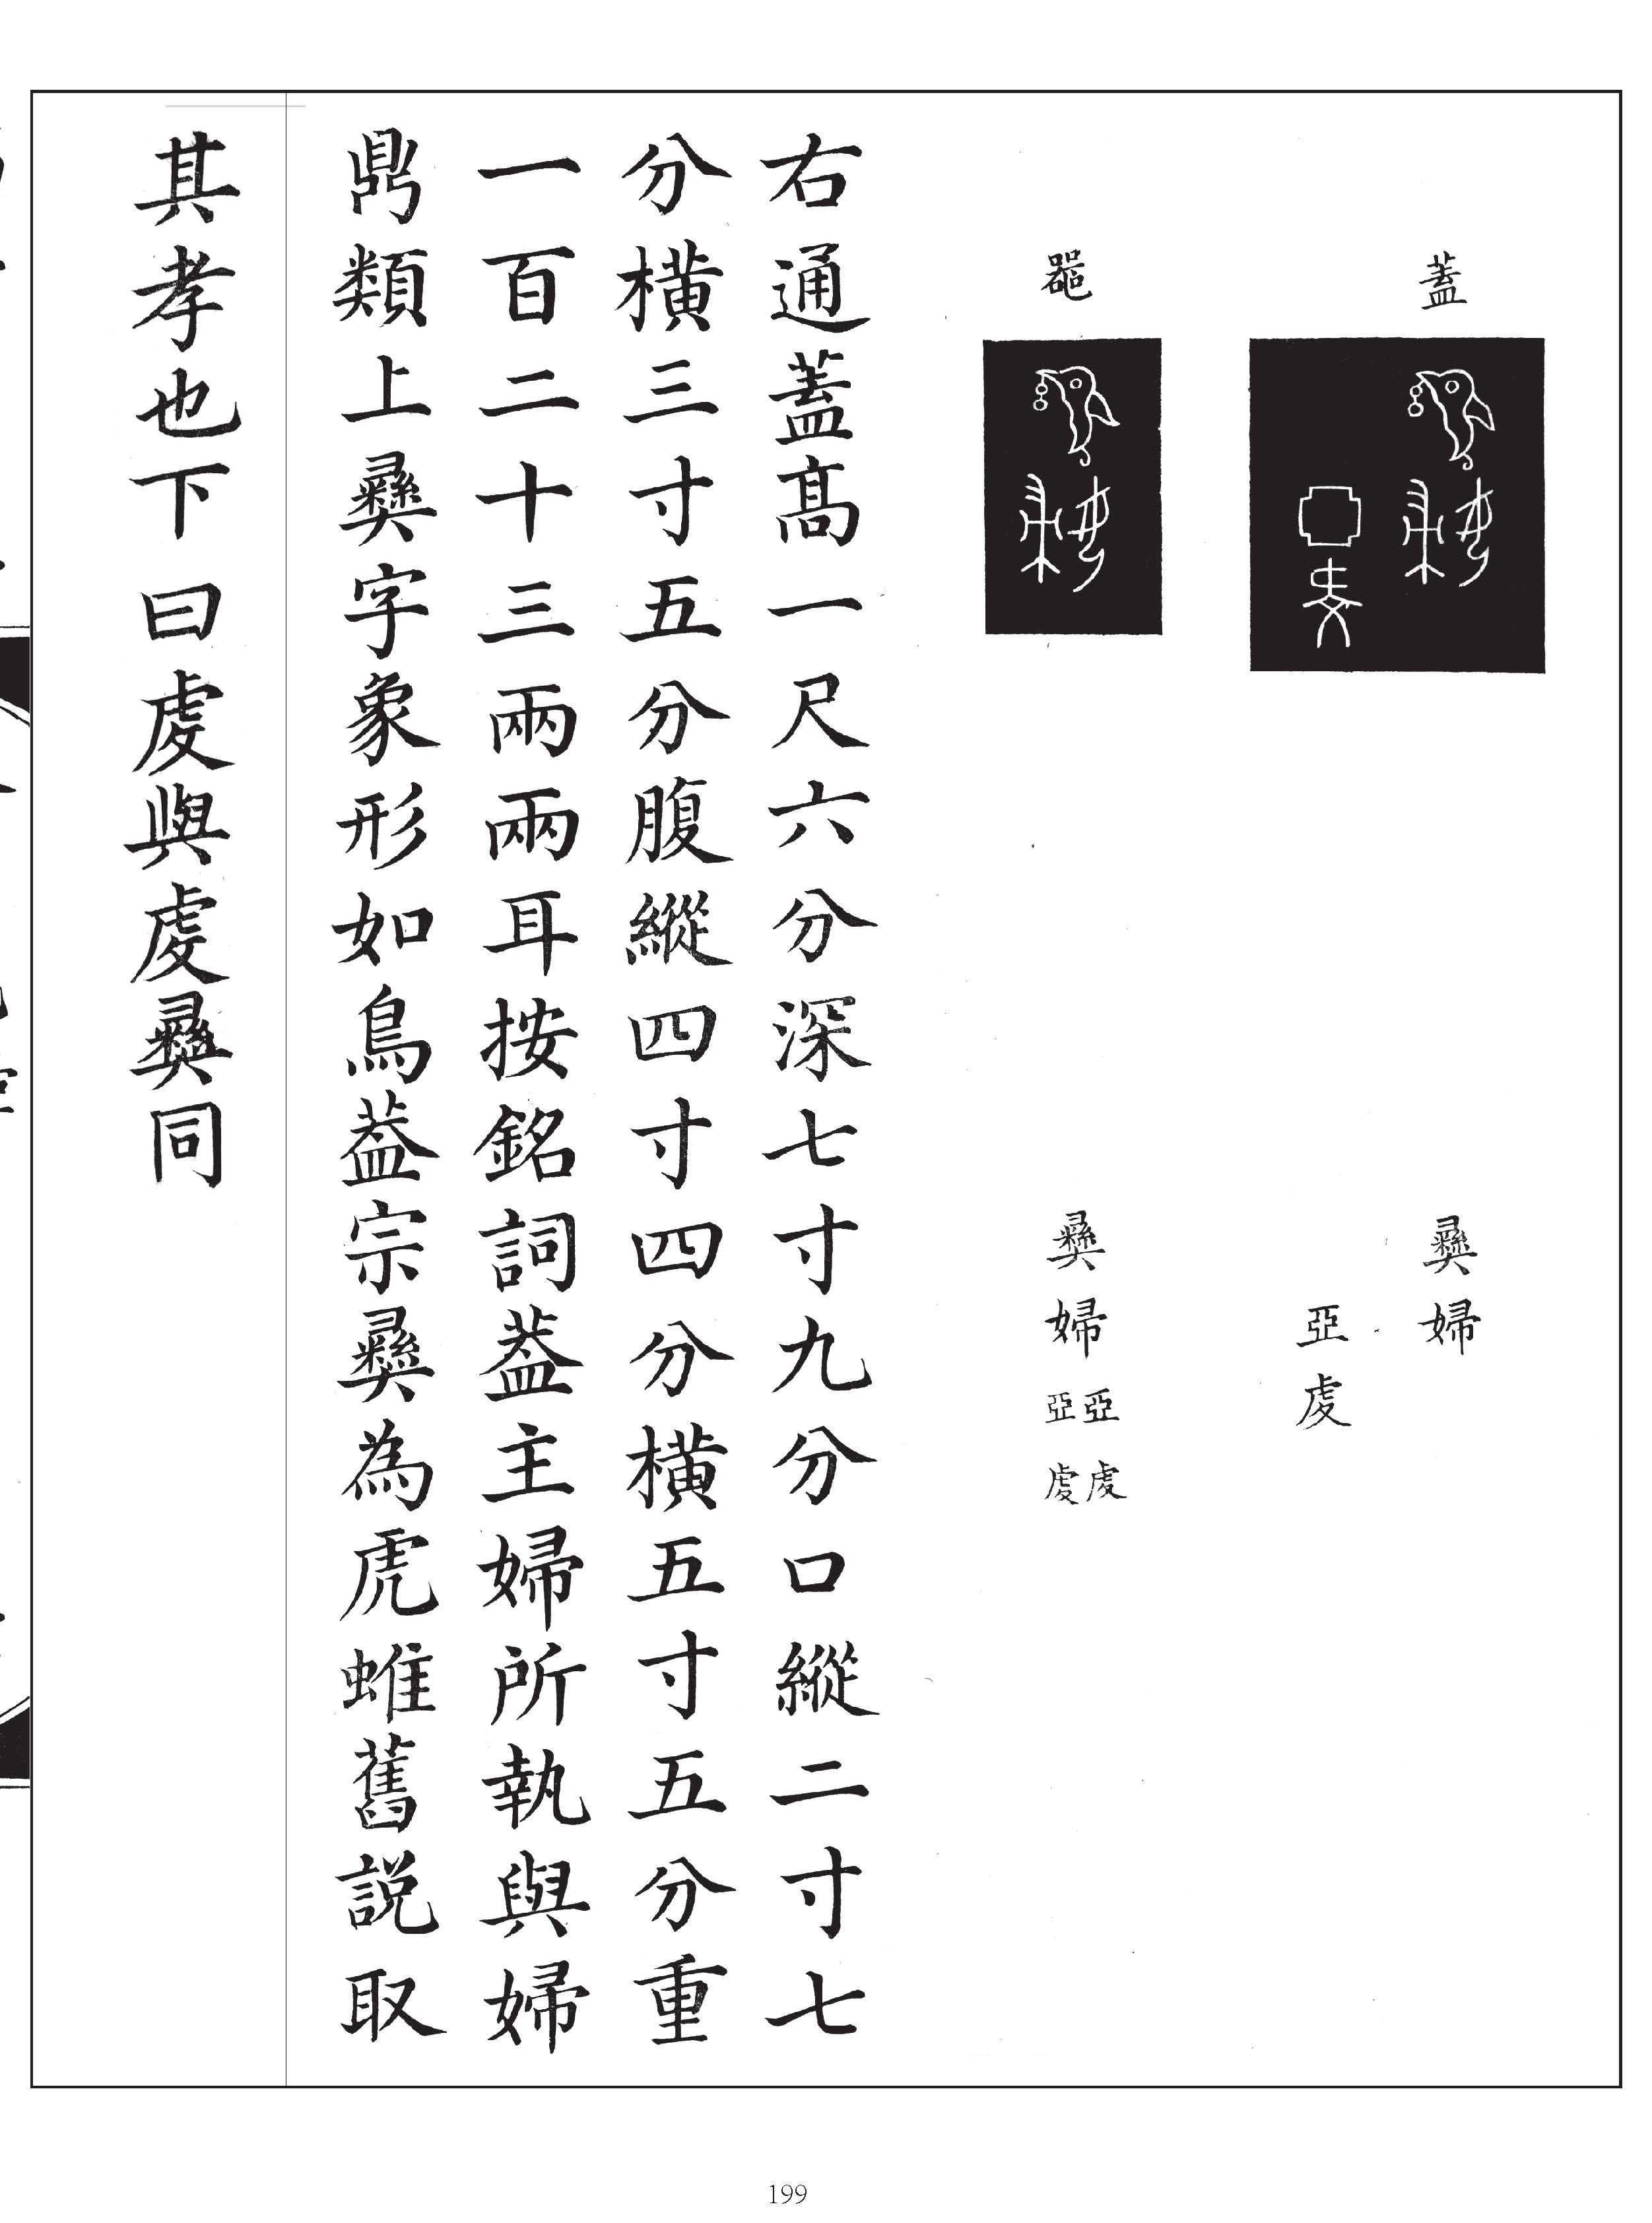 蓋
彝婦
亞虔
器
彝婦
亞虔
亞虔
右通蓋高一尺六分深七寸九分口縱二寸七
分橫三寸五分腹縱四寸四分橫五寸五分重
一百二十三兩兩耳按銘詞葢主婦所執與婦
鼎類上彝字象形如鳥葢宗彝為虎蜼舊説取
其孝也下曰虔與虔彝同
199